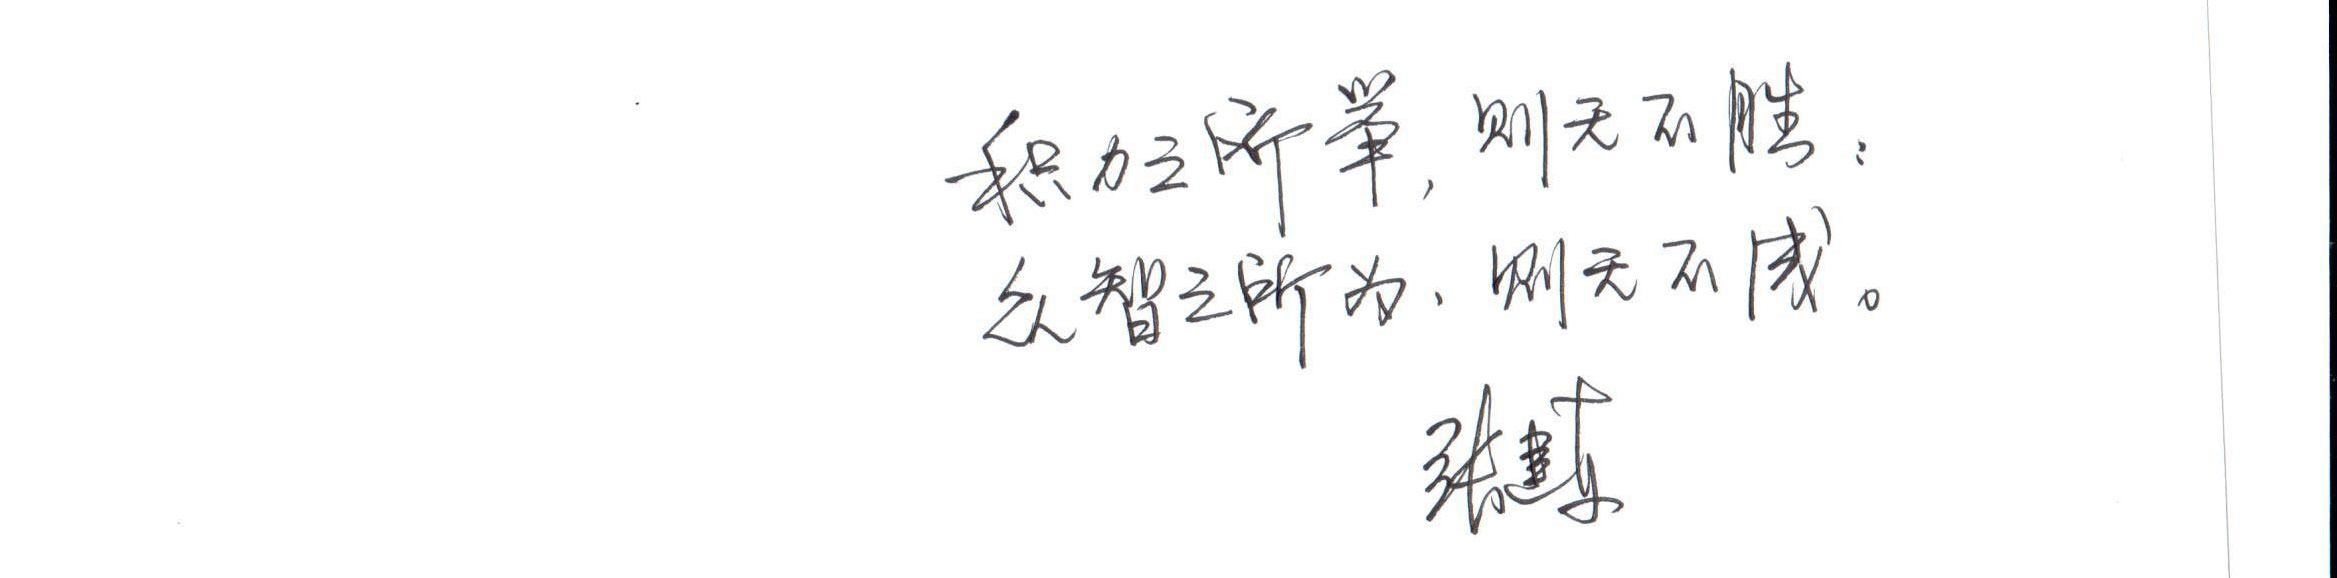 积力之所举，则无不胜；
众智之所为，则无不成。
张建东